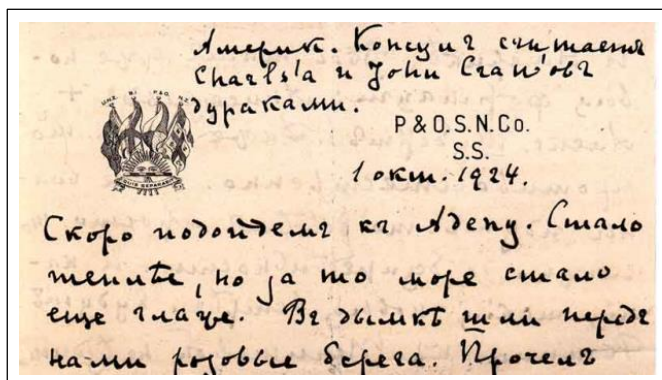 Америк. Консулъ считаетъ
Charls'a и John Cran'овъ
дураками.
QUIS SEPARABIT
P & O. S. N. Co.
S.S.
1 окт. 1924.
Скоро подойдемъ къ Адену. Стало
теплѣе, но за то море стало
еще глаже. Въ дымкѣ шли передъ
нами розовые берега. Прочелъ